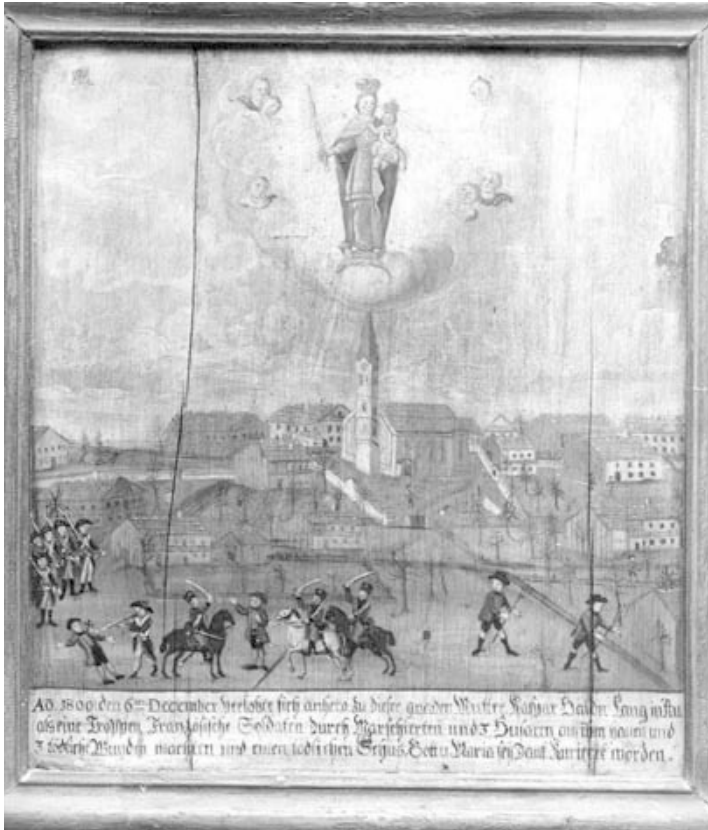 AO. 1800. den 6ten December verlobte sich anhero zu dieser gnaden Mutter, Kaspar Lang in Au
als eine Troppen Französische Soldaten durch Marschierten und 3 Husaren auf ihm hauen und
3 todliche Wunden machten und einen todlichen Schus. Gott u Maria sey Danck Kurieret worden.